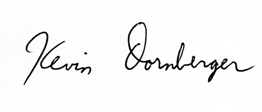 Kevin Dornberger